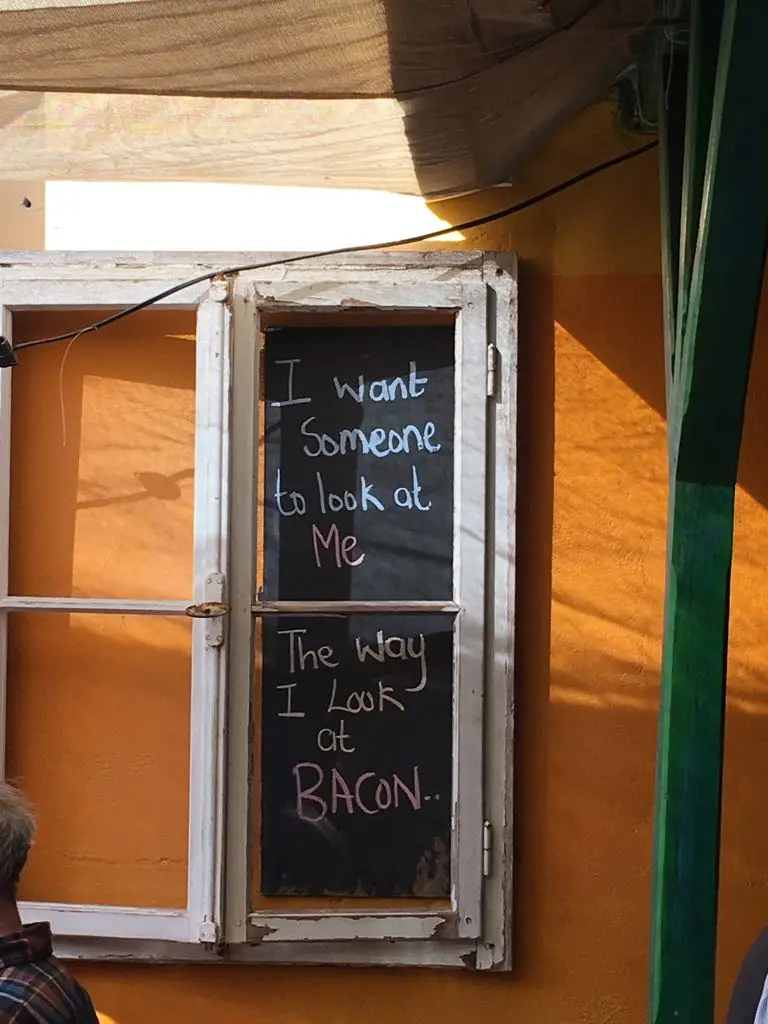 I want
Someone
to look at
Me
The way
I Look
at
BACON..